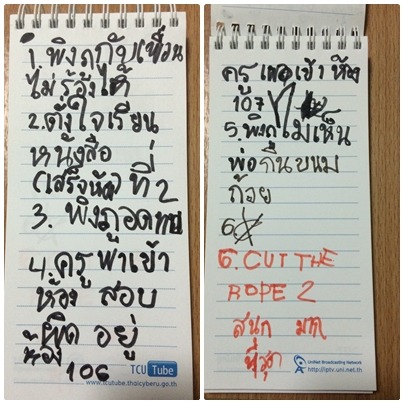 1. พิงภูกับเพื่อน
ไม่รู้
2.ตั้งใจเรียน
หนังสือ
ที่ 2
3. พิงภูอดทน
4.ครูพาเข้า
ห้อง สอบ
ผิด อยู่
ห้อง 106
TCU Tube
www.tcutube.thaicyberu.go.th
ครู เข้า ห้อง
107
5.พิงภูไม่เห็น
พ่อกินขนม
ถ้วย
6
6.CUT THE
ROPE 2
สนุก มาก
ที่สุด
UniNet Broadcasting Network
http://iptv.uni.net.th